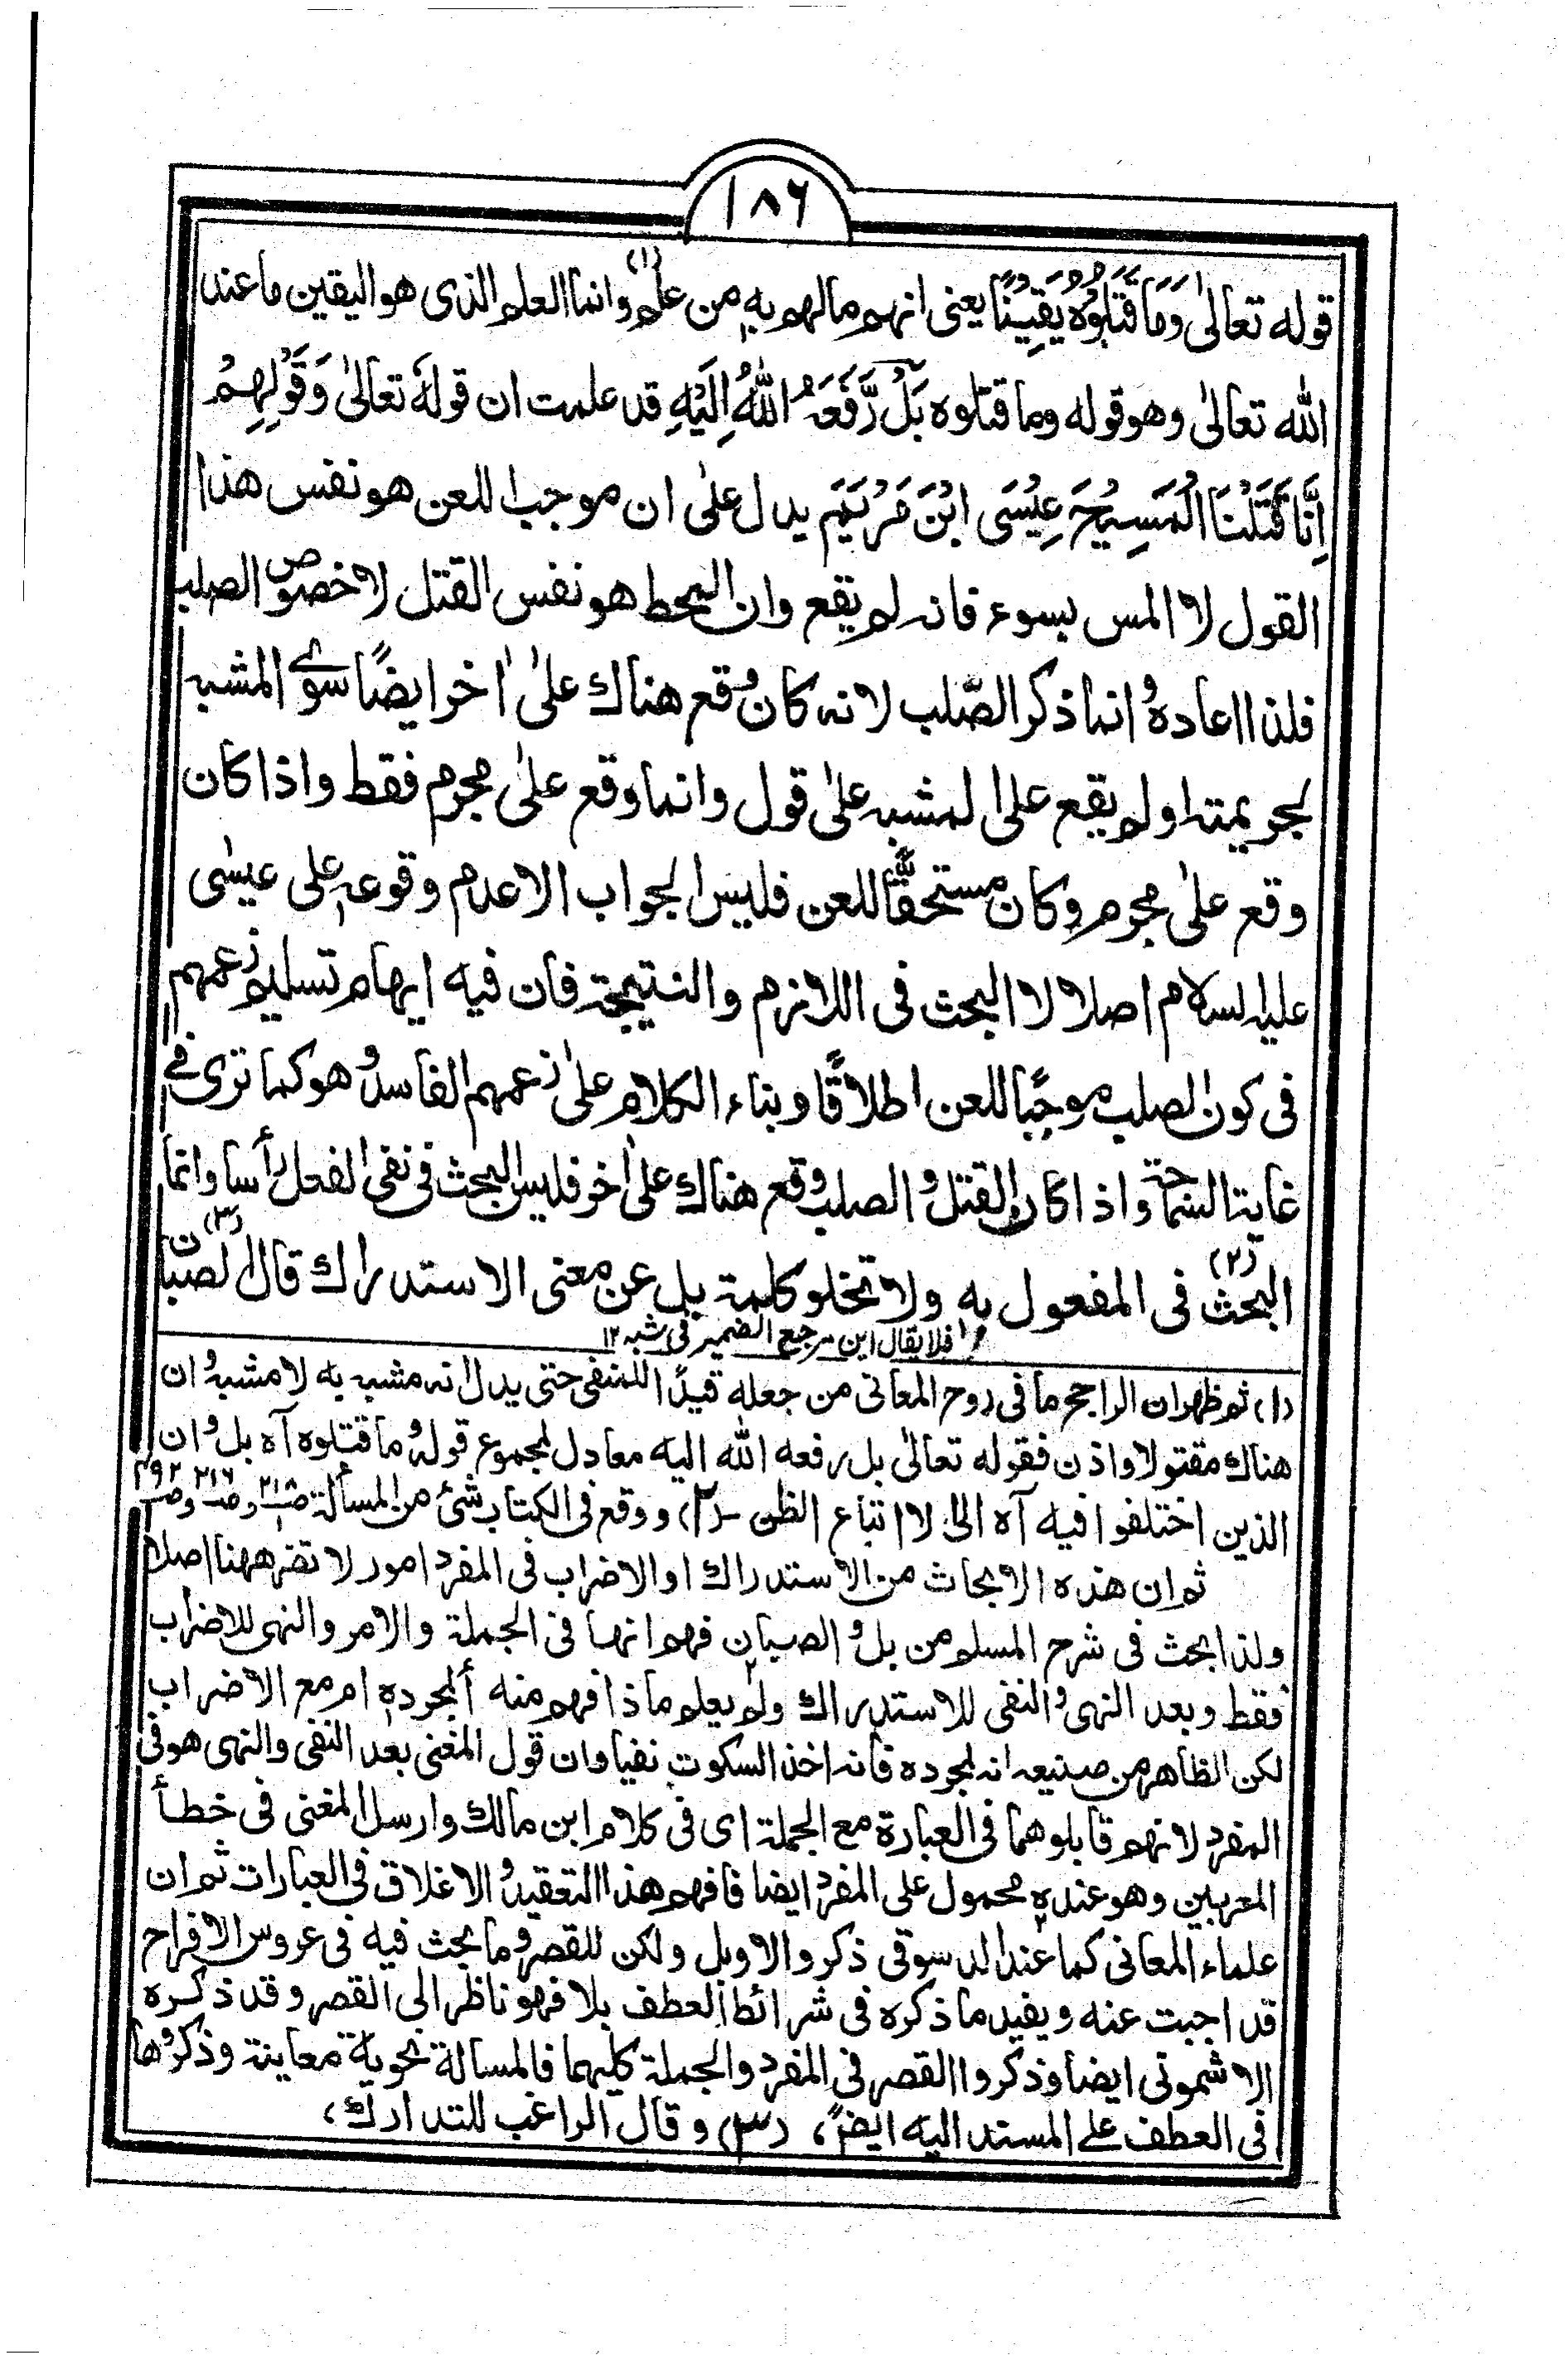 ١٨٦
قوله تعالىٰ وَمَا قَتَلُوْهُ يَقِيْنًا يعنى انهم مالهم به من علم (١) وانما العلم الذى هو اليقين ما عند
الله تعالىٰ وهو قوله وما قتلوه بَلْ رَّفَعَهُ اللّٰهُ اِلَيْهِ قد علمت ان قولهٗ تعالىٰ وَقَوْلِهِمْ
اِنَّا قَتَلْنَا الْمَسِيْحَ عِيْسَى ابْنَ مَرْيَمَ يدل علىٰ ان موجب اللعن هو نفس هذا
القول لا المس بسوء فانه لم يقع وان المحط هو نفس القتل لا خصوص الصلب
فلذا اعاده وانما ذكر الصّلب لانه كان وقع هناك علىٰ اٰخر ايضًا سوى المشبه
لجريمته اولم يقع على المشبه علىٰ قول وانما وقع علىٰ مجرم فقط واذا كان
وقع علىٰ مجرم وكان مستحقًّا للعن فليس الجواب الا عدم وقوعه على عيسٰى
عليه السلام اصلا لا البحث فى اللازم والنتيجة فان فيه ايهام تسليم زعمهم
فى كون الصلب موجبًا للعن اطلاقًا وبناء الكلام علىٰ زعمهم الفاسد وهو كما ترى فى
غاية السماحة واذا كان القتل والصلب وقع هناك علىٰ اٰخر فليس البحث فى نفى الفعل رأسا وانما
البحث (٢) فى المفعول به ولا تخلو كلمة بل عن معنى الاستدراك قال الصبان (٣)
فلا يقال اين مرجع الضمير فى شبه ١٢
(١) ثم ظهر ان الراجح ما فى روح المعانى من جعله قيدًا للمنفى حتى يدل انه مشبه به لا مشبه وان
هناك مقتولا واذن فقوله تعالىٰ بل رفعه الله اليه معادل لمجموع قوله وما قتلوه اه بل وان
الذين اختلفوا فيه اه الى لا اتباع الظن - (٢) ووقع فى الكتاب شئ من المسألة صـ٢١٥ وصـ٢١٦ وصـ٢٩٢
ثم ان هذه الابحاث من الاستدراك او الاضراب فى المفرد امور لا تضر ههنا اصلا
ولذا بحث فى شرح المسلم من بل والصبان فهم انها فى الجملة والامر والنهى للاضراب
فقط وبعد النهى والنفى للاستدراك ولم يعلم ماذا فهم منه ألمجرده ام مع الاضراب
لكن الظاهر من صنيعه انه لمجرده فانه اخذ السكوت نفيا وان قول المغنى بعد النفى والنهى هو فى
المفرد لانهم قابلوهما فى العبارة مع الجملة اى فى كلام ابن مالك وارسل المغنى فى خطأ
المعربين وهو عنده محمول على المفرد ايضا فافهم هذا التعقيد والاغلاق فى العبارات ثم ان
علماء المعانى كما عند الدسوقى ذكروا لا وبل ولكن للقصر وما بحث فيه فى عروس الافراح
قد اجبت عنه ويفيد ما ذكره فى شرائط العطف بلا فهو ناظر الى القصر وقد ذكره
الاشمونى ايضا وذكروا القصر فى المفرد والجملة كليهما فالمسالة نحوية معاينة وذكروها
فى العطف على المسند اليه ايضًا، (٣) وقال الراغب للتدارك،